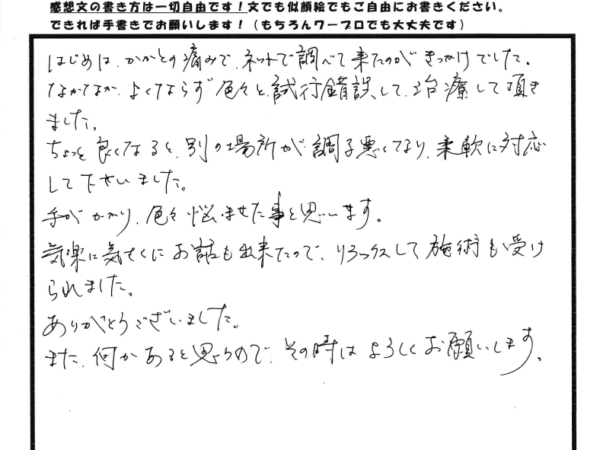 感想文の書き方は一切自由です!文でも似顔絵でもご自由にお書きください。
できれば手書きでお願いします!(もちろんワープロでも大丈夫です)
はじめは、かかとの痛みで、ネットで調べて来たのがきっかけでした。
なかなか、よくならず色々と試行錯誤して、治療して頂き
ました。
ちょっと良くなると、別の場所が調子悪くなり、柔軟に対応
して下さいました。
手がかかり、色々悩ませた事と思います。
気楽に気さくにお話も出来たので、リラックスして施術も受け
られました。
ありがとうございました。
また、何かあると思うので、その時はよろしくお願いします。